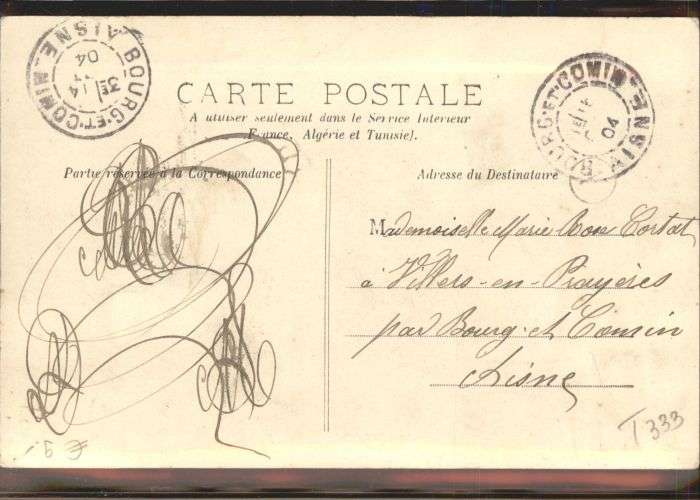 CARTE POSTALE
A utiliser seulement dans le Service Intérieur
(France, Algérie et Tunisie).
Partie réservée à la Correspondance
Adresse du Destinataire
BOURG-ET-COMIN
AISNE
04
BOURG-ET-COMIN
AISNE
04
Mademoiselle Marie Rose Cortat
à Villers-en-Prayères
par Bourg-et-Comin
Aisne
T 333